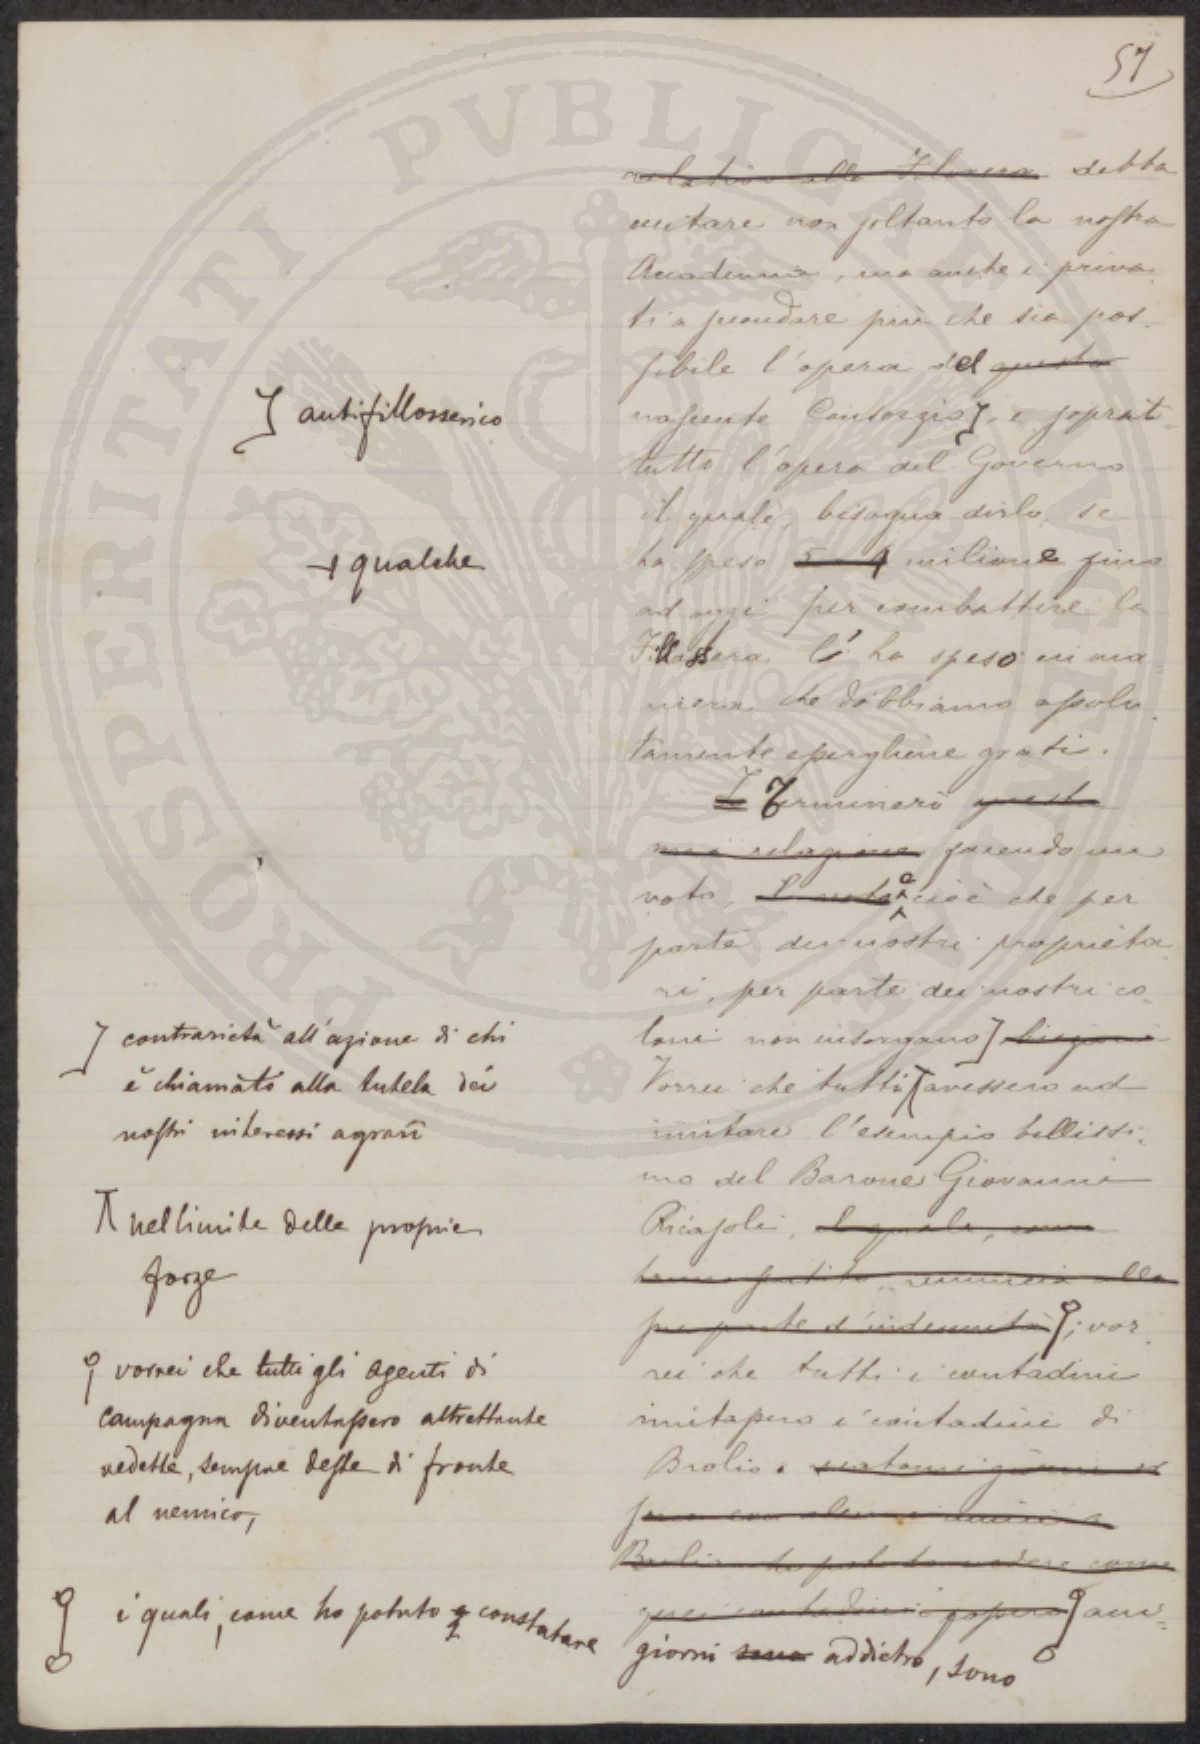 57
relativo alla Filossera debba
aiutare non soltanto la nostra
Accademia, ma anche i priva-
ti a secondare più che sia pos-
sibile l'opera del questo
nascente Consorzio, e soprat-
tutto l'opera del Governo
il quale, bisogna dirlo, se
ha speso milione fino
ad oggi per combattere la
Fillossera l'ha speso in ma-
niera che dobbiamo assolu-
tamente essergliene grati.
Terminerò questa
mia relazione facendo un
voto, cioè che per
parte dei nostri proprieta-
ri, per parte dei nostri co-
loni non insorgano
Vorrei che tutti avessero ad
imitare l'esempio bellissi-
mo del Barone Giovanni
Ricasoli, il quale, come
renuncia alla
sua parte d'indennità; vor-
rei che tutti i contadini
imitassero i contadini di
Brolio.
Brolio ho potuto vedere come
quei contadini
giorni sono addietro, sono
antifillosserico
+ qualche
contrarietà all'azione di chi
è chiamato alla tutela dei
nostri interessi agrari
nel limite delle proprie
forze
vorrei che tutti gli agenti di
campagna diventassero altrettante
vedette, sempre deste di fronte
al nemico,
i quali, come ho potuto constatare
PROSPERITATI PVBLICAE AVGENDAE